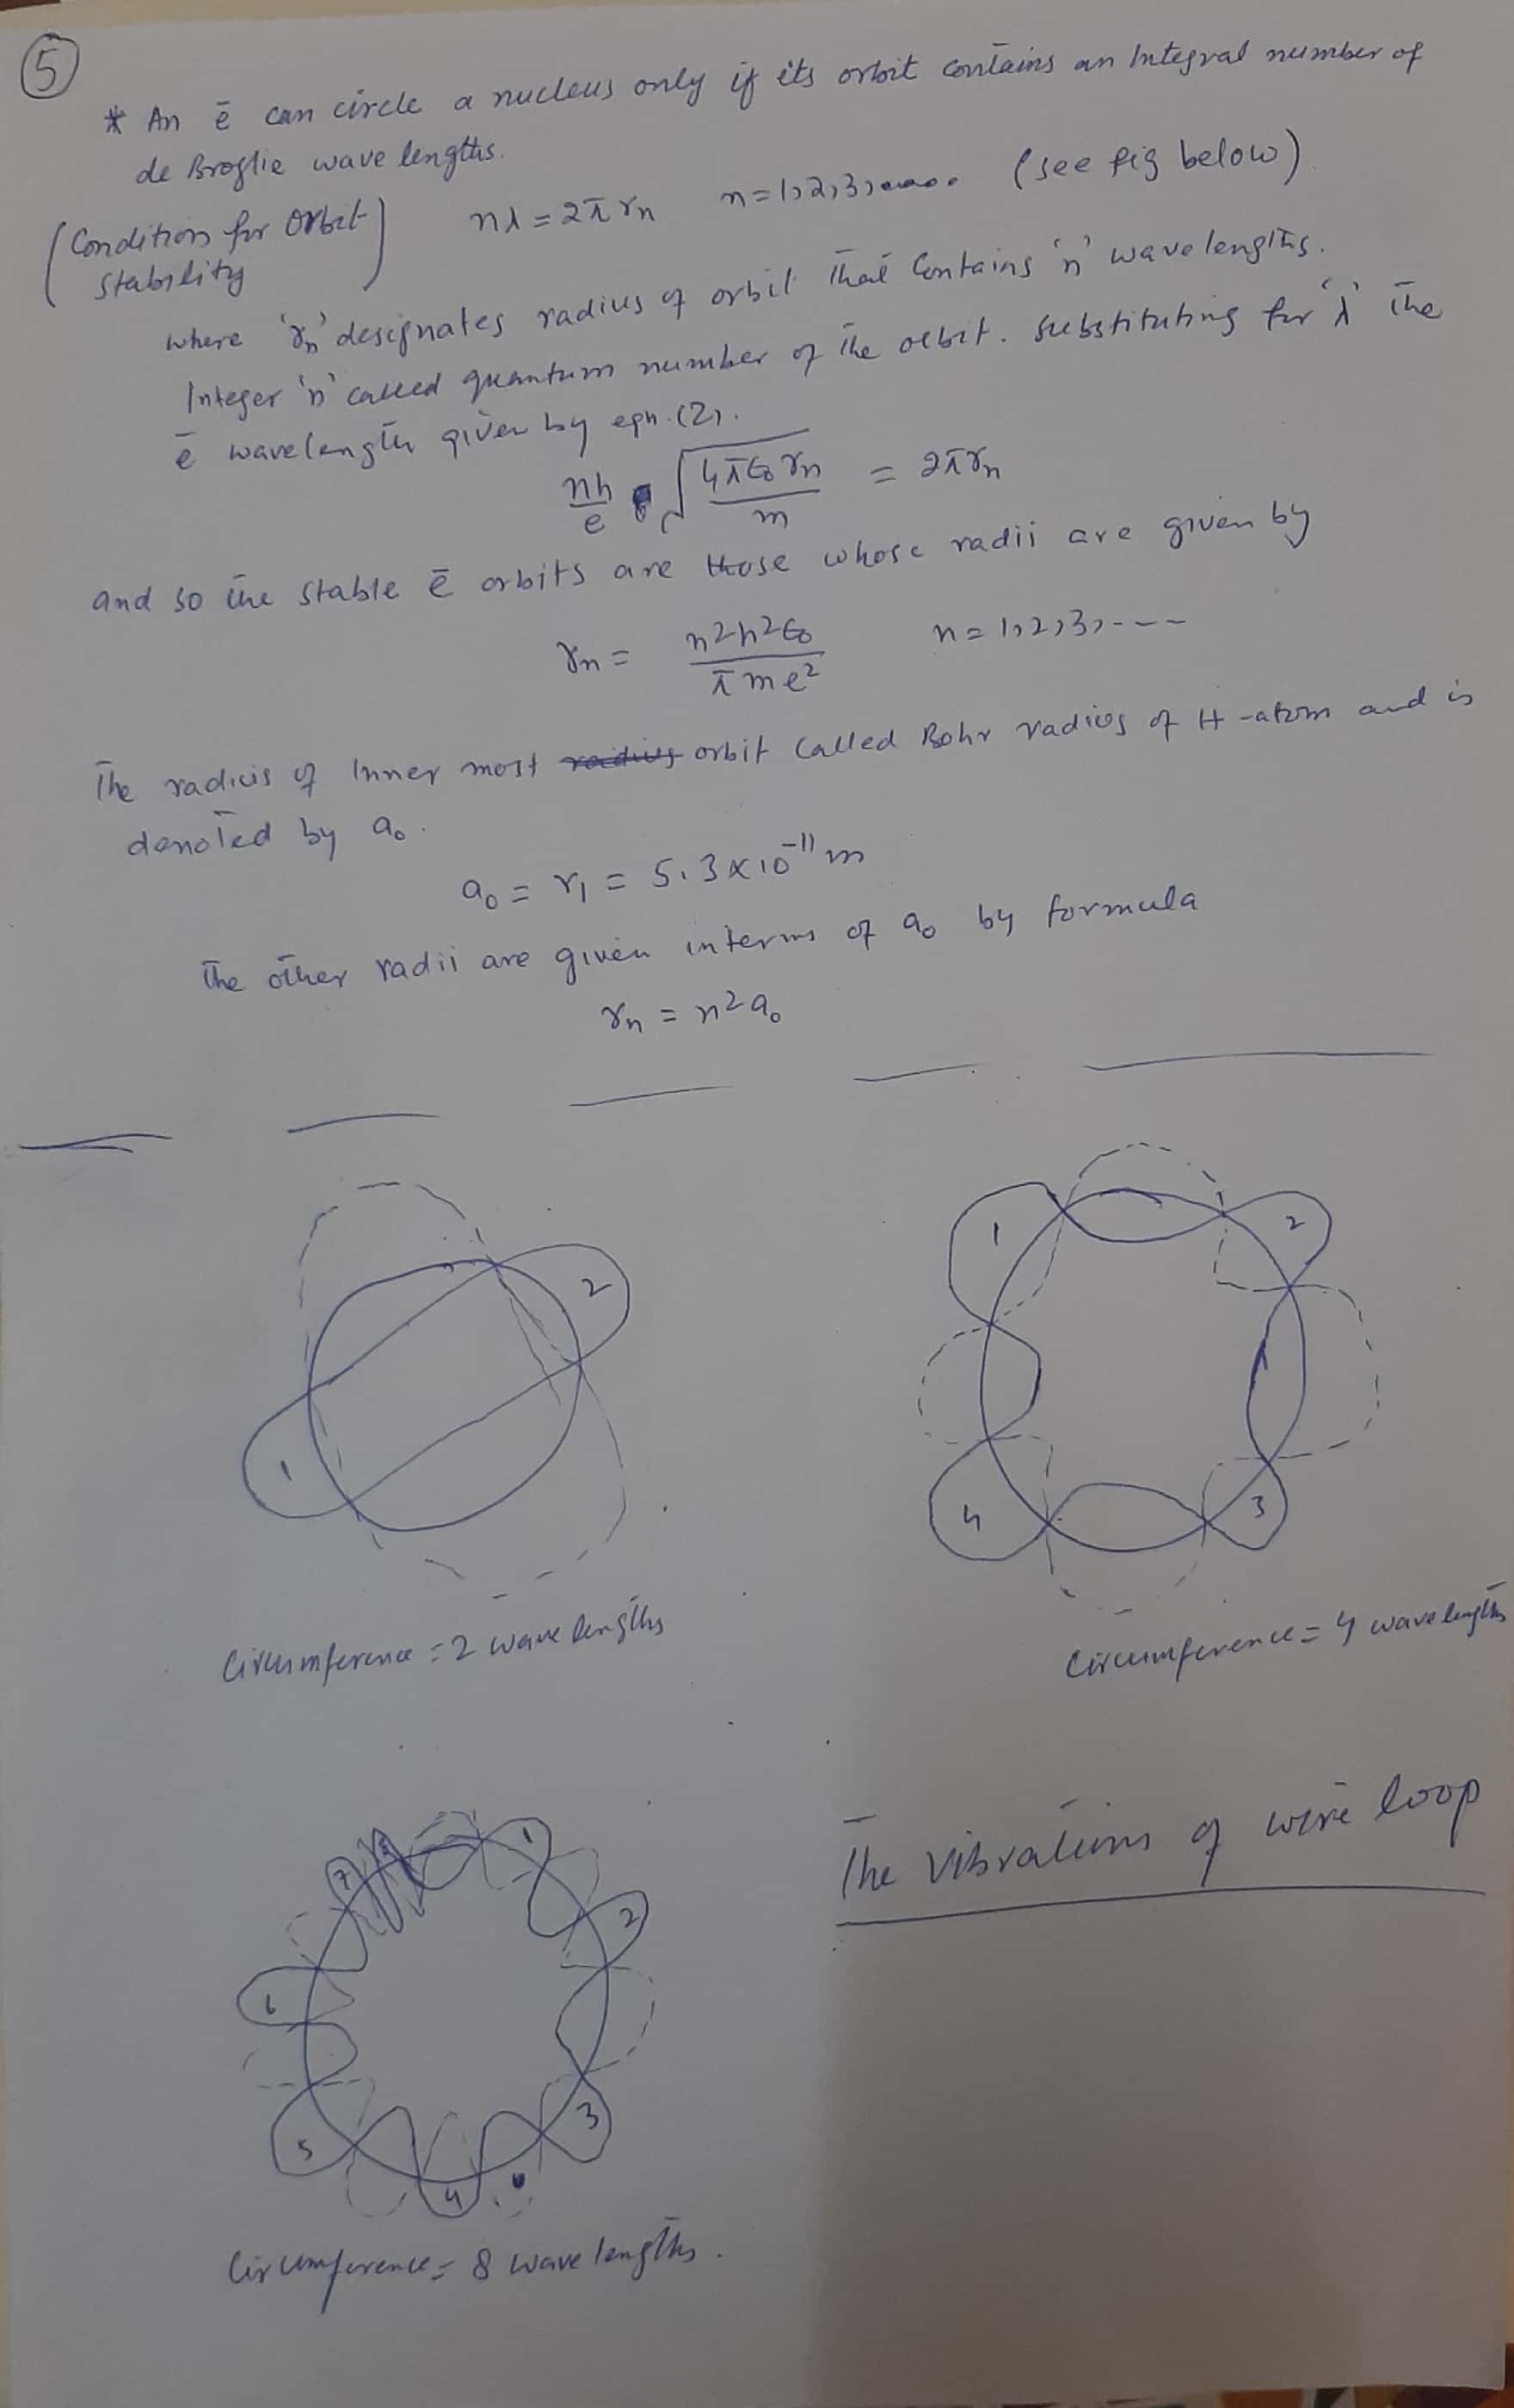 5
* An ē can circle a nucleus only if its orbit contains an Integral number of
de Broglie wave lengths.
(Condition for Orbit stability) nλ = 2πrn n=1,2,3,..... (see fig below)
where 'rn' designates radius of orbit that Contains 'n' wavelengths.
Integer 'n' called quantum number of the orbit. Substituting for 'λ' the
ē wavelength given by eqn.(2).
nh/e √(4πϵ0rn/m) = 2πrn
and so the stable ē orbits are those whose radii are given by
rn = n²h²ϵ0/πme² n=1,2,3,---
The radius of Inner most orbit called Bohr radius of H-atom and is
denoted by a0.
a0 = r1 = 5.3×10⁻¹¹m
The other radii are given interms of a0 by formula
rn = n²a0
1 2
1 2
4 3
Circumference = 2 wave lengths
Circumference = 4 wavelengths
1
7
2
6
3
5
4
The vibrations of wire loop
Circumference = 8 wave lengths.